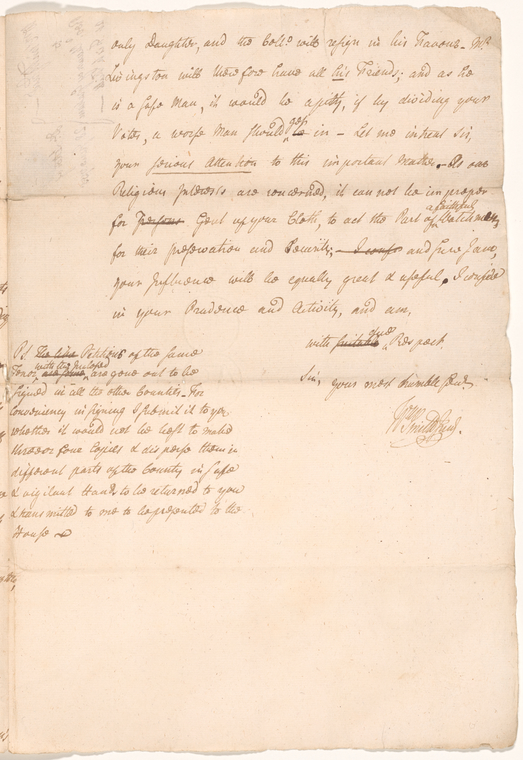 only Daughter, and the Coll.o will resign in his Favour – Mr
Livingston will therefore have all his Friends; and as he
is a safe Man, it would be a pitty, if by dividing your
Votes, a worse Man should get in – Let me intreat Sir,
your serious Attention to this important Matter. – As our
Religious Interests are concerned, it can not be improper
for Persons Gent of your Cloth, to act the Part of a faithful Watchman,
for their preservation and Security; – I confess and sure I am,
your Influence will be equally great & useful. I confide
in your Prudence and Activity, and am,
with true Respect
Sir, your most humble Servt.
Wm Smith Junr.
PS. The like Petitions of the same
Tenor with the inclosed are gone out to be
signed in all the other Counties. For
conveniency in signing I submit it to you
whether it would not be best to make
three or four Copies & disperse them in
different parts of the County in safe
& vigilant Hands to be returned to you
& transmitted to me to be presented to the
House